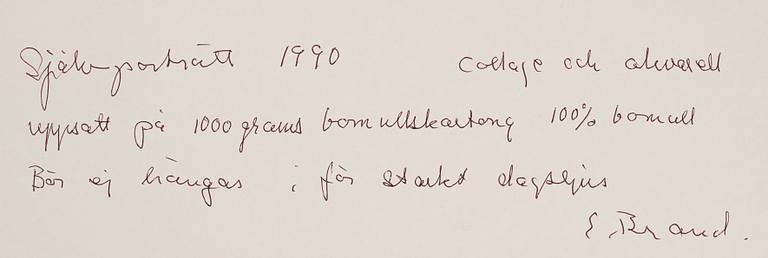 Självporträtt 1990 collage och akvarell
uppsatt på 1000 grams bomullskartong 100% bomull
Bör ej hängas i för starkt dagsljus
E. Brand.